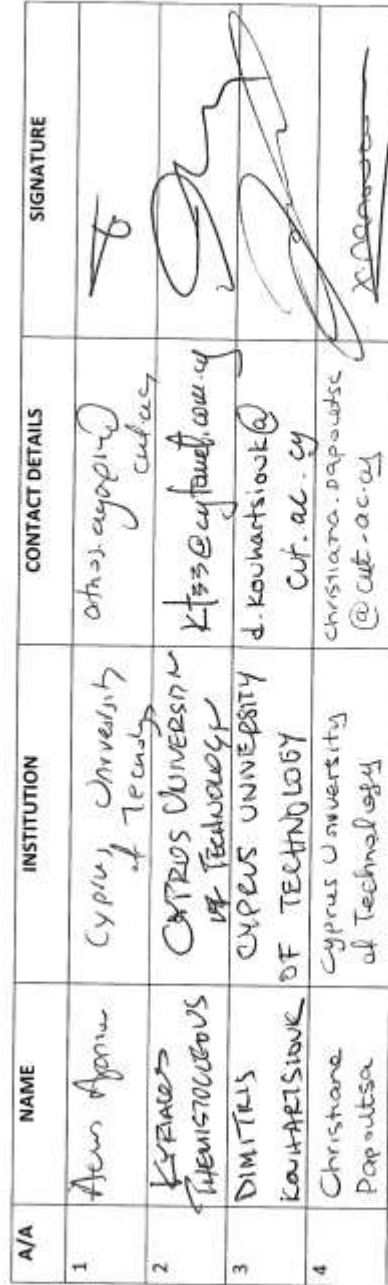 A/A NAME INSTITUTION CONTACT DETAILS SIGNATURE
1 Cyprus University
of
cut.ac.cy
2 KYRIACOS
THEMISTOCLEOUS
UNIVERSITY
OF TECHNOLOGY
kt33@cytanet.com.cy
3 DIMITRIS
KOUHARTSIOUK
CYPRUS UNIVERSITY
OF TECHNOLOGY
d.kouhartsiouk@
cut.ac.cy
4 Christiana
Papoutsa
Cyprus University
of Technology
christiana.papoutsa
@cut.ac.cy